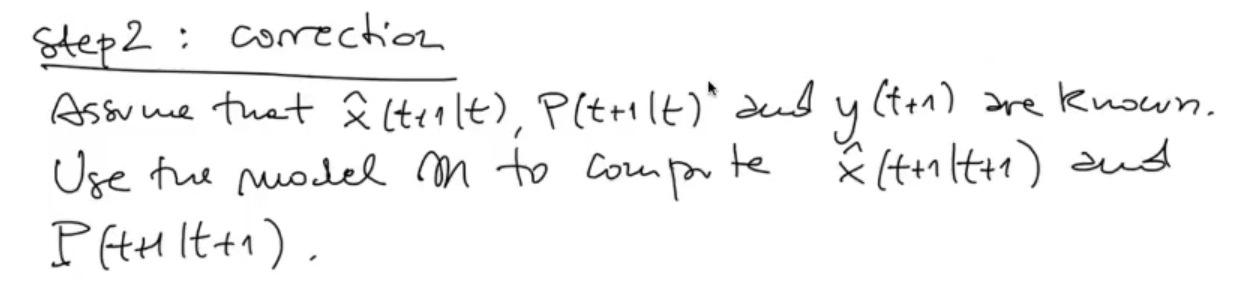 step2 : correction
Assume that x̂(t+1|t), P(t+1|t) and y(t+1) are known.
Use the model M to compute x̂(t+1|t+1) and
P(t+1|t+1).